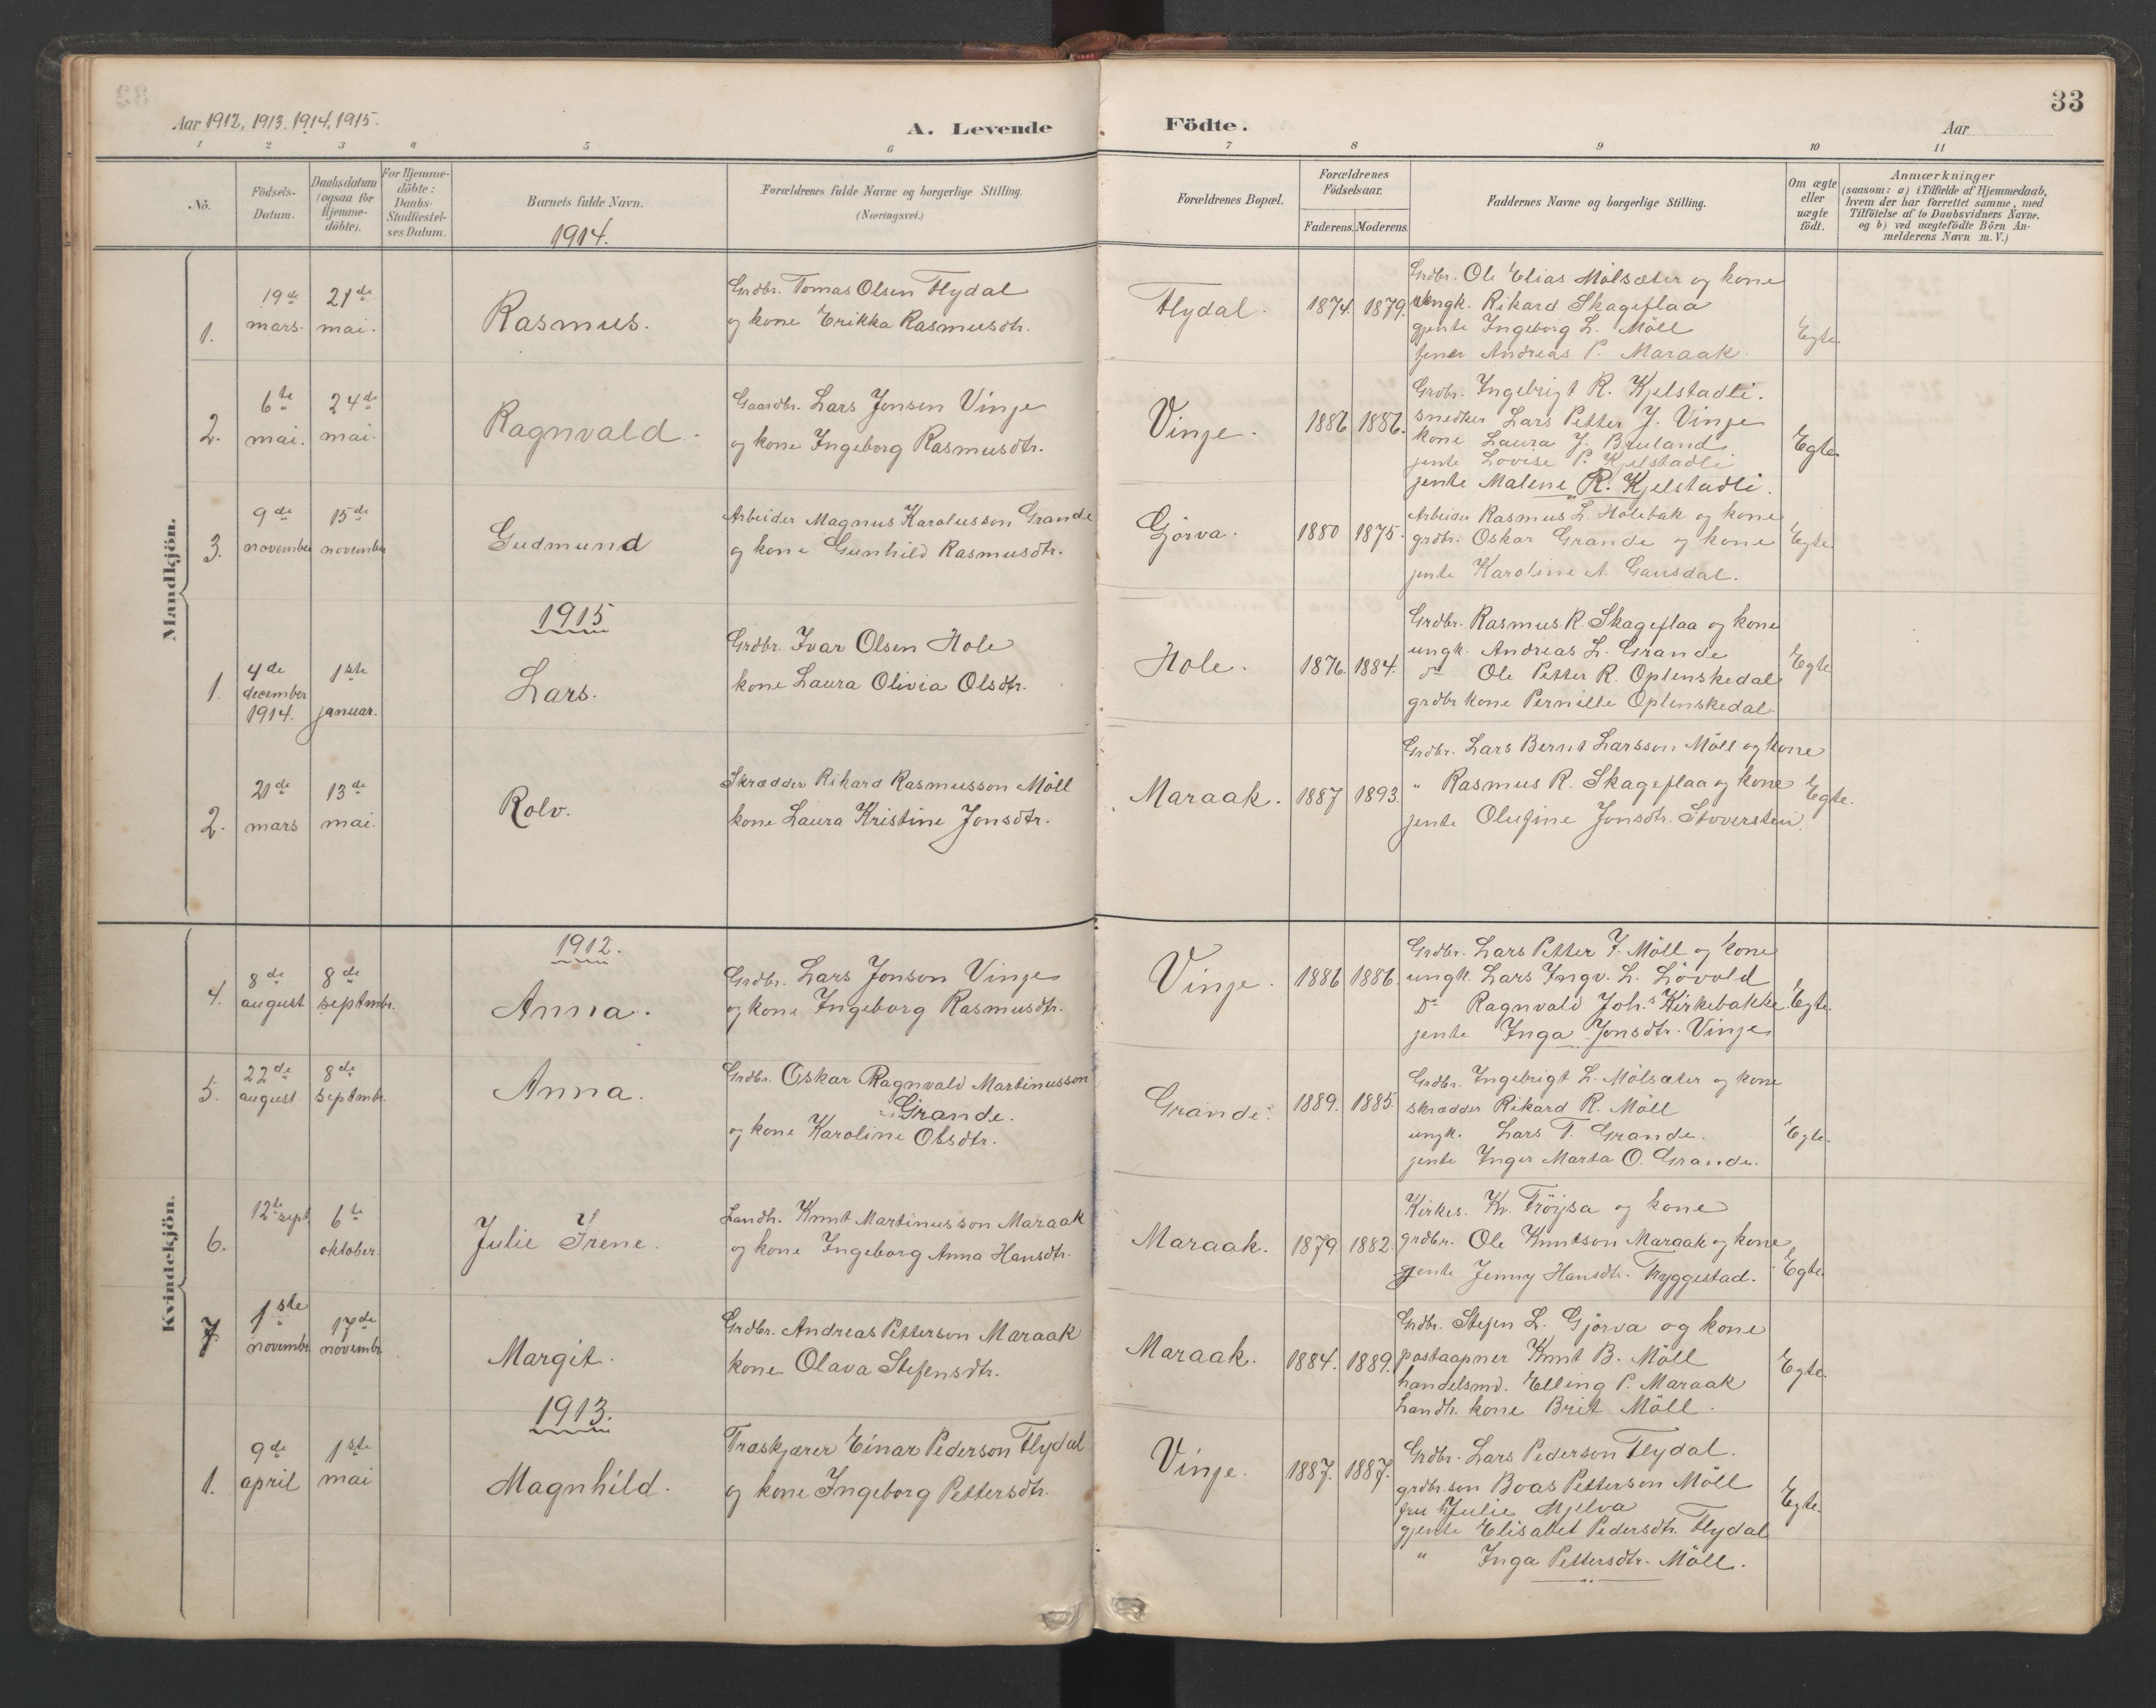 33
Aar 1912, 1913, 1914, 1915.
A. Levende Födte.
Aar
1 2 3 4 5 6 7 8 9 10 11
No.
Födsels-
Datum.
Daabsdatum
(ogsaa for
Hjemme-
döbte).
For Hjemme-
döbte:
Daabs-
Stadfæstel-
ses Datum.
Barnets fulde Navn.
Forældrenes fulde Navne og borgerlige Stilling.
(Næringsvei.)
Forældrenes Bopæl.
Forældrenes
Födselsaar.
Faderens. Moderens.
Faddernes Navne og borgerlige Stilling.
Om ægte
eller
uægte
födt.
Anmærkninger
(saasom: a) i Tilfælde af Hjemmedaab,
hvem der har forrettet samme, med
Tilföielse af to Daabsvidners Navne.
og b) ved uægtefödte Börn An-
melderens Navn m. V.)
Mandkjön.
1914.
1.
19de
mars.
21de
mai.
Rasmus.
Grdbr. Tomas Olsen Flydal
og kone Erikka Rasmusdtr.
Flydal.
1874. 1879.
Grdbr. Ole Elias Mölsæter og kone
ungk. Rikard Skageflaa
gjente Ingeborg L. Möll
Andreas P. Maraak.
Egte.
2.
6te
mai.
24de
mai.
Ragnvald.
Gaardbr. Lars Jonsen Vinje
og kone Ingeborg Rasmusdtr.
Vinje.
1886 1886.
Grdbr. Ingebrigt R. Kjelstadli.
snedker Lars Petter J. Vinje
kone Laura J. Bruland
jente Lovise P. Kjelstadli
jente Malene R. Kjelstadli.
Egte.
3.
9de
november
15de
november
Gudmund
Arbeider Magnus Karolusson Grande
og kone Gunhild Rasmusdtr.
Gjörva.
1880 1875.
Arbeider Rasmus L. Holebak og kone
grdbr. Oskar Grande og kone
jente Karoline A. Gausdal.
Egte.
1915
1.
4de
december
1914.
1ste
januar.
Lars.
Grdbr. Ivar Olsen Hole
kone Laura Olivia Olsdtr.
Hole.
1876. 1884.
Grdbr. Rasmus R. Skageflaa og kone
ungk. Andreas L. Grande
do Ole Petter R. Oplenskedal
grdbr kone Pernille Oplenskedal.
Egte
2.
21de
mars
13de
mai.
Rolv.
Skrædder Rikard Rasmusson Möll
kone Laura Kristine Jonsdtr.
Maraak.
1887 1893.
Grdbr. Lars Bernt Larsson Möll og kone
" Rasmus R. Skageflaa og kone
jente Olufine Jonsdtr. Stoverstein.
Egte.
Kvindekjön.
1912.
4.
8de
august
8de
septmbr.
Anna.
Grdbr. Lars Jonson Vinje
og kone Ingeborg Rasmusdtr.
Vinje.
1886 1886.
Grdbr. Lars Petter J. Möll og kone
ungk. Lars Ingv. L. Lövold
do Ragnvald Johs Kirkebakke
jente Inga Jonsdtr. Vinje
Egte.
5.
22de
august.
8de
septmbr.
Anna.
Grdbr. Oskar Ragnvald Martinusson
Grande.
og kone Karoline Olsdtr.
Grande.
1889. 1885.
Grdbr. Ingebrigt L. Mölsæter og kone
skrædder Rikard R. Möll
ungk. Lars T. Grande.
jente Inger Marta O. Grande.
Egte.
6.
12te sept.
6te
oktober.
Julie Irene.
Landh. Knut Martinusson Maraak
og kone Ingeborg Anna Hansdtr.
Maraak.
1879 1882.
Kirkes. Kr. Tröysa og kone
grdbr. Ole Knutson Maraak og kone
gjente Jenny Hansdtr. Tryggestad.
Egte.
7.
1ste
novembr
17de
novembr
Margit.
Grdbr. Andreas Petterson Maraak
kone Olava Stefensdtr.
Maraak.
1884. 1889.
Grdbr. Stefen L. Gjörva og kone
postaapner Knut B. Möll
handelsmd. Elling P. Maraak
Landh. kone Brit Möll.
Egte.
1913.
1.
9de
april
1ste
mai
Magnhild.
Træskjærer Einar Pederson Flydal
og kone Ingeborg Pettersdtr.
Vinje.
1887. 1887.
Grdbr. Lars Pederson Flydal.
grdbr.son Boas Petterson Möll
fru Julie Mjelva
gjente Elisabet Pedersdtr. Flydal
" Inga Pettersdtr. Möll.
Egte.